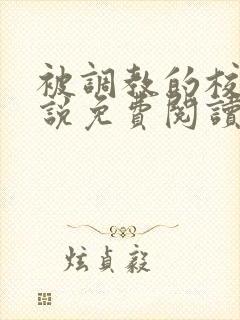 被調教的校
說免費閱讀
炫貞毅